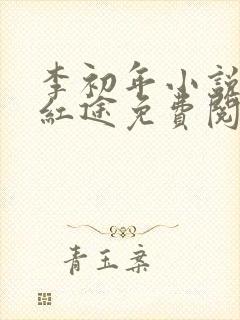 李初年小説
紅途免費閱
青玉案